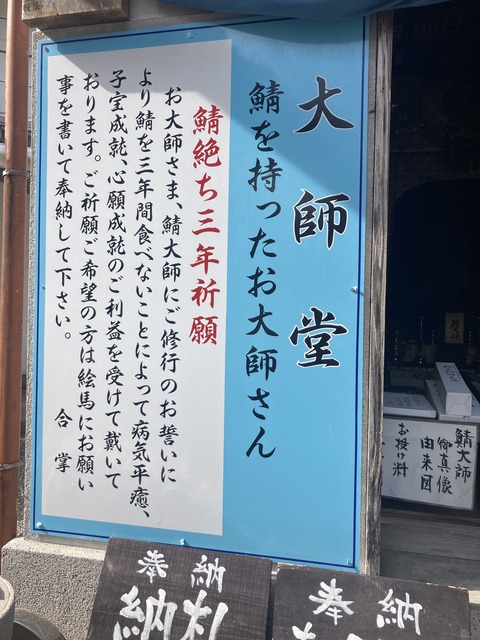 大師堂
鯖を持ったお大師さん
鯖絶ち三年祈願
お大師さま、鯖大師にご修行のお誓いに
より鯖を三年間食べないことによって病気平癒、
子宝成就、心願成就のご利益を受けて戴いて
おります。ご祈願ご希望の方は絵馬にお願い
事を書いて奉納して下さい。
合掌
鯖大師
御真像
由来図
お授け料
奉納
納札
奉納